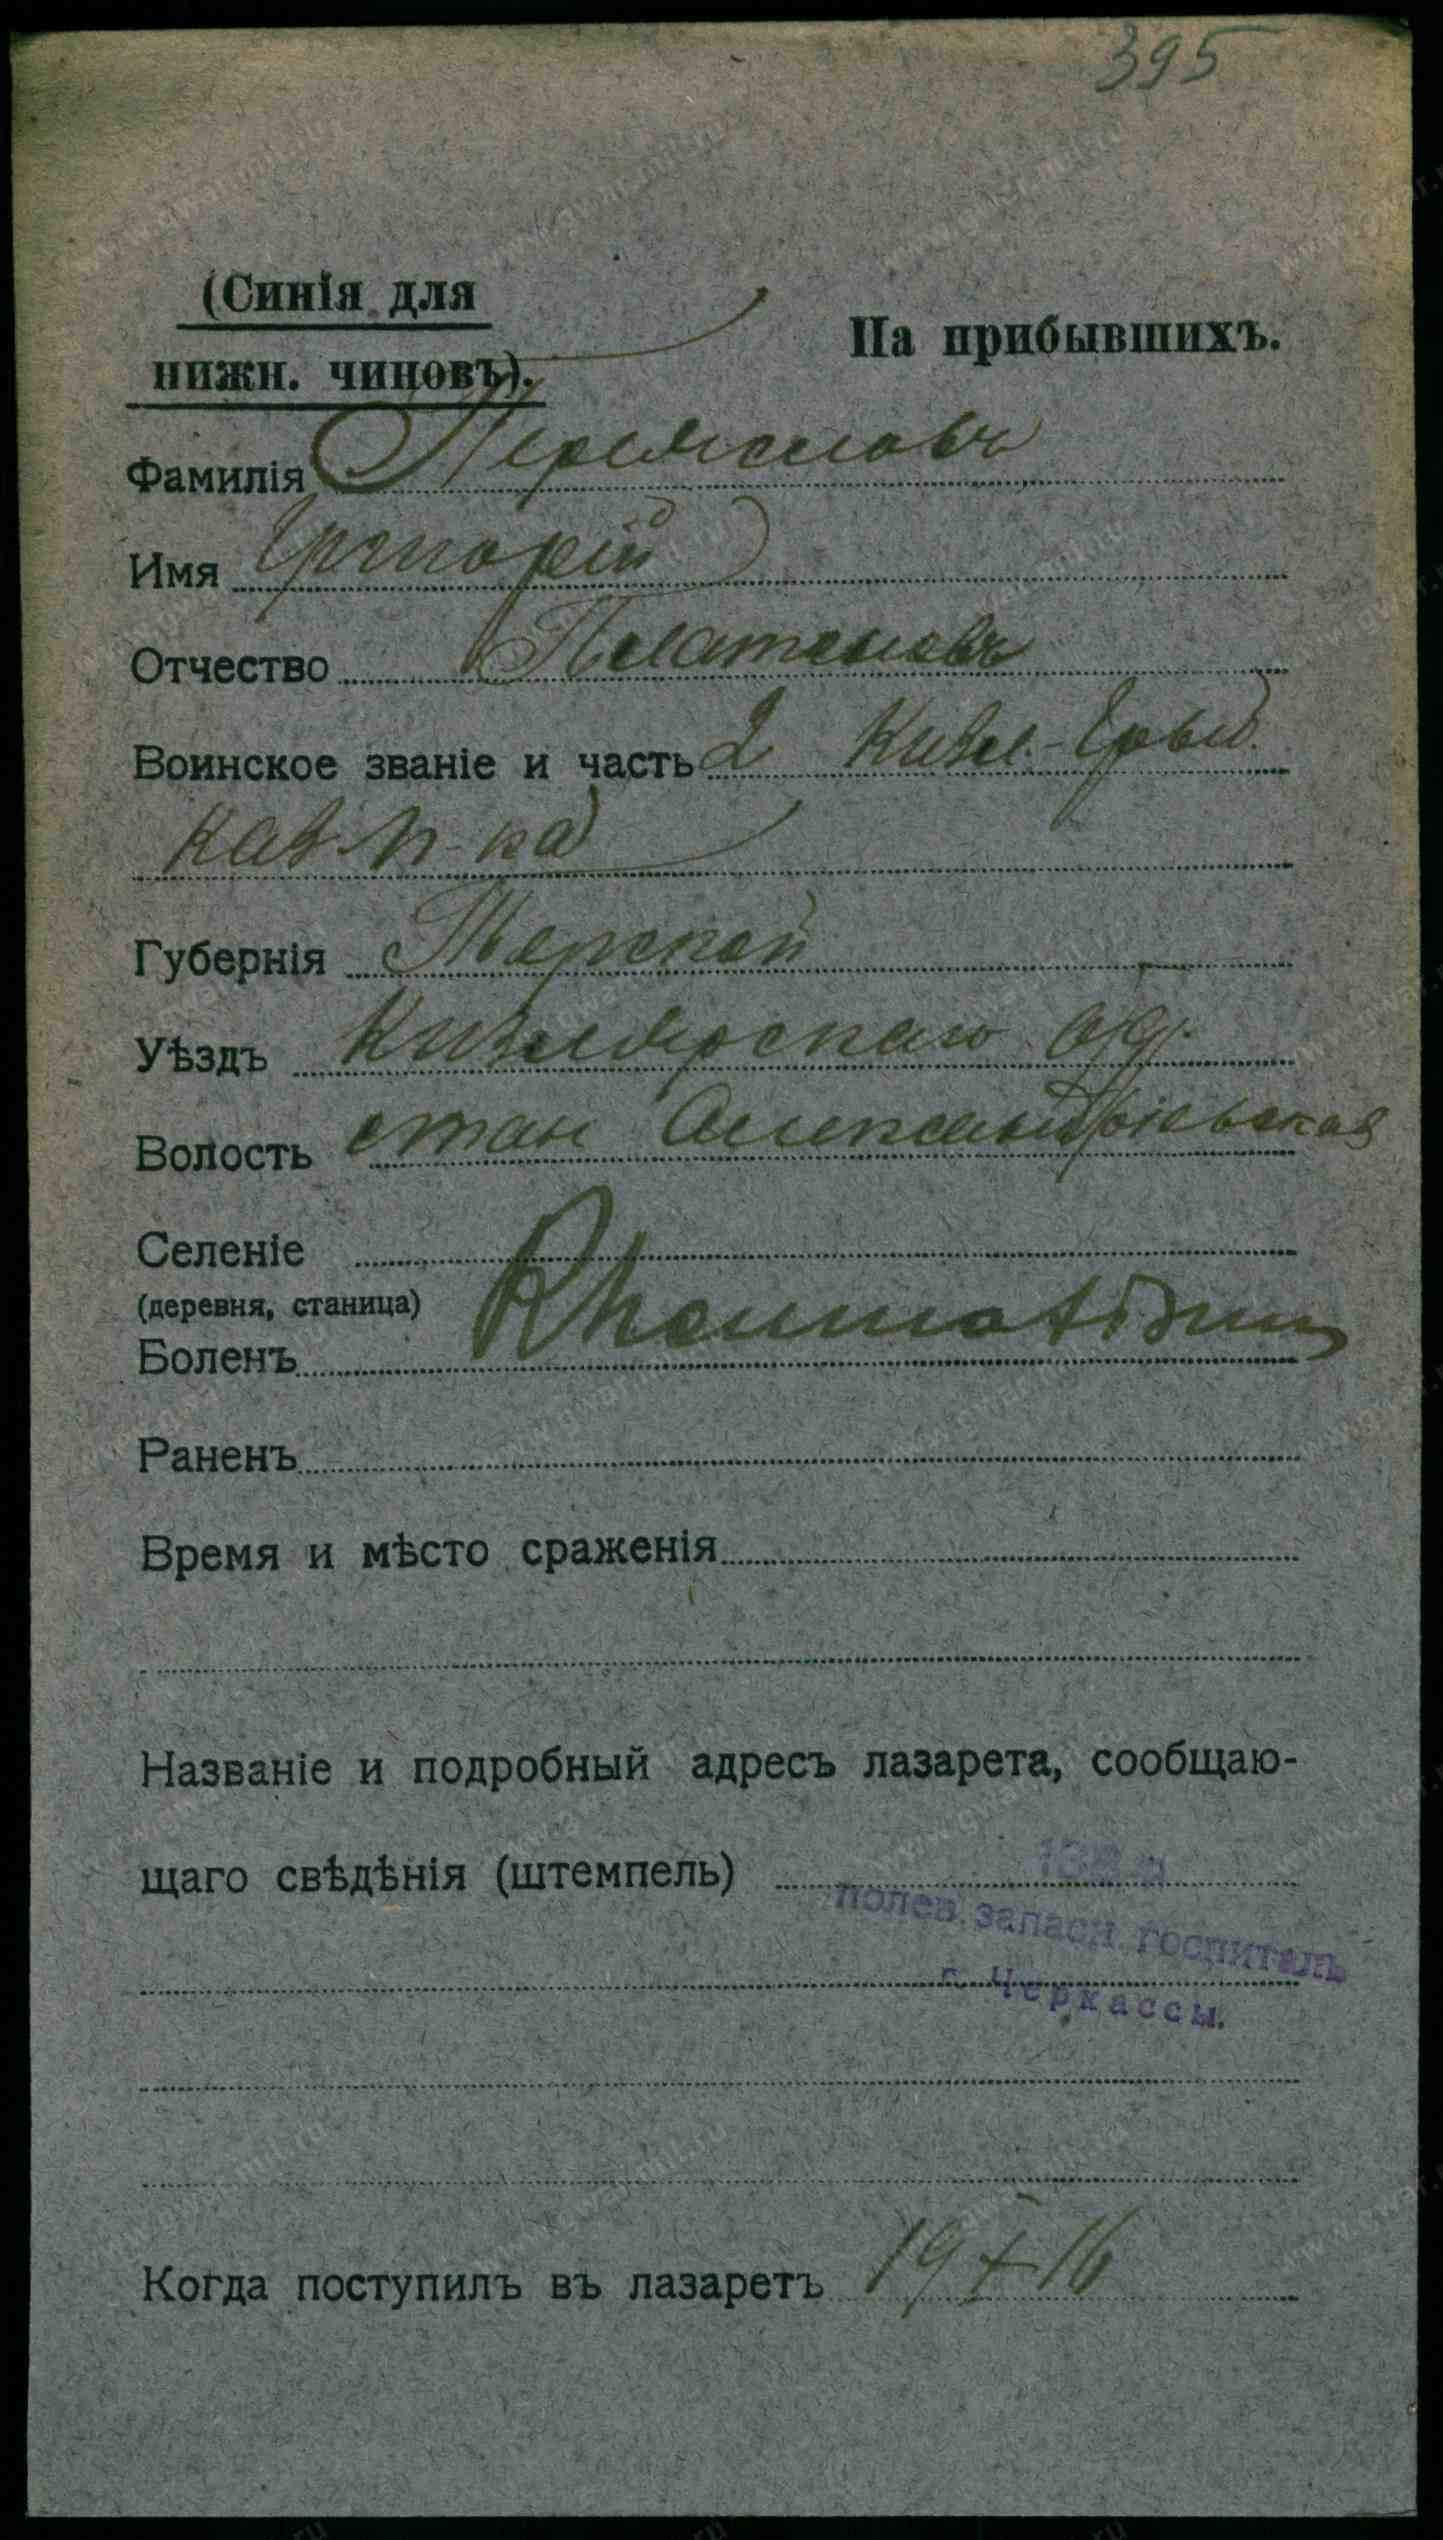 395
(Синія для
нижн. чиновъ).
На прибывшихъ.
Фамилія Перемсловъ
Имя Григорій
Отчество Платоновъ
Воинское званіе и часть 2 Кизл.-Греб.
кав п-ка
Губернія Терской
Уѣздъ Кизлярскаго од.
Волость стан Александрійская
Селеніе
(деревня, станица)
Боленъ Rheumatismus
Раненъ
Время и мѣсто сраженія
Названіе и подробный адресъ лазарета, сообщаю-
щаго свѣдѣнія (штемпель)
полев. запасн. госпиталь
г. Черкассы.
Когда поступилъ въ лазаретъ 19 X 16